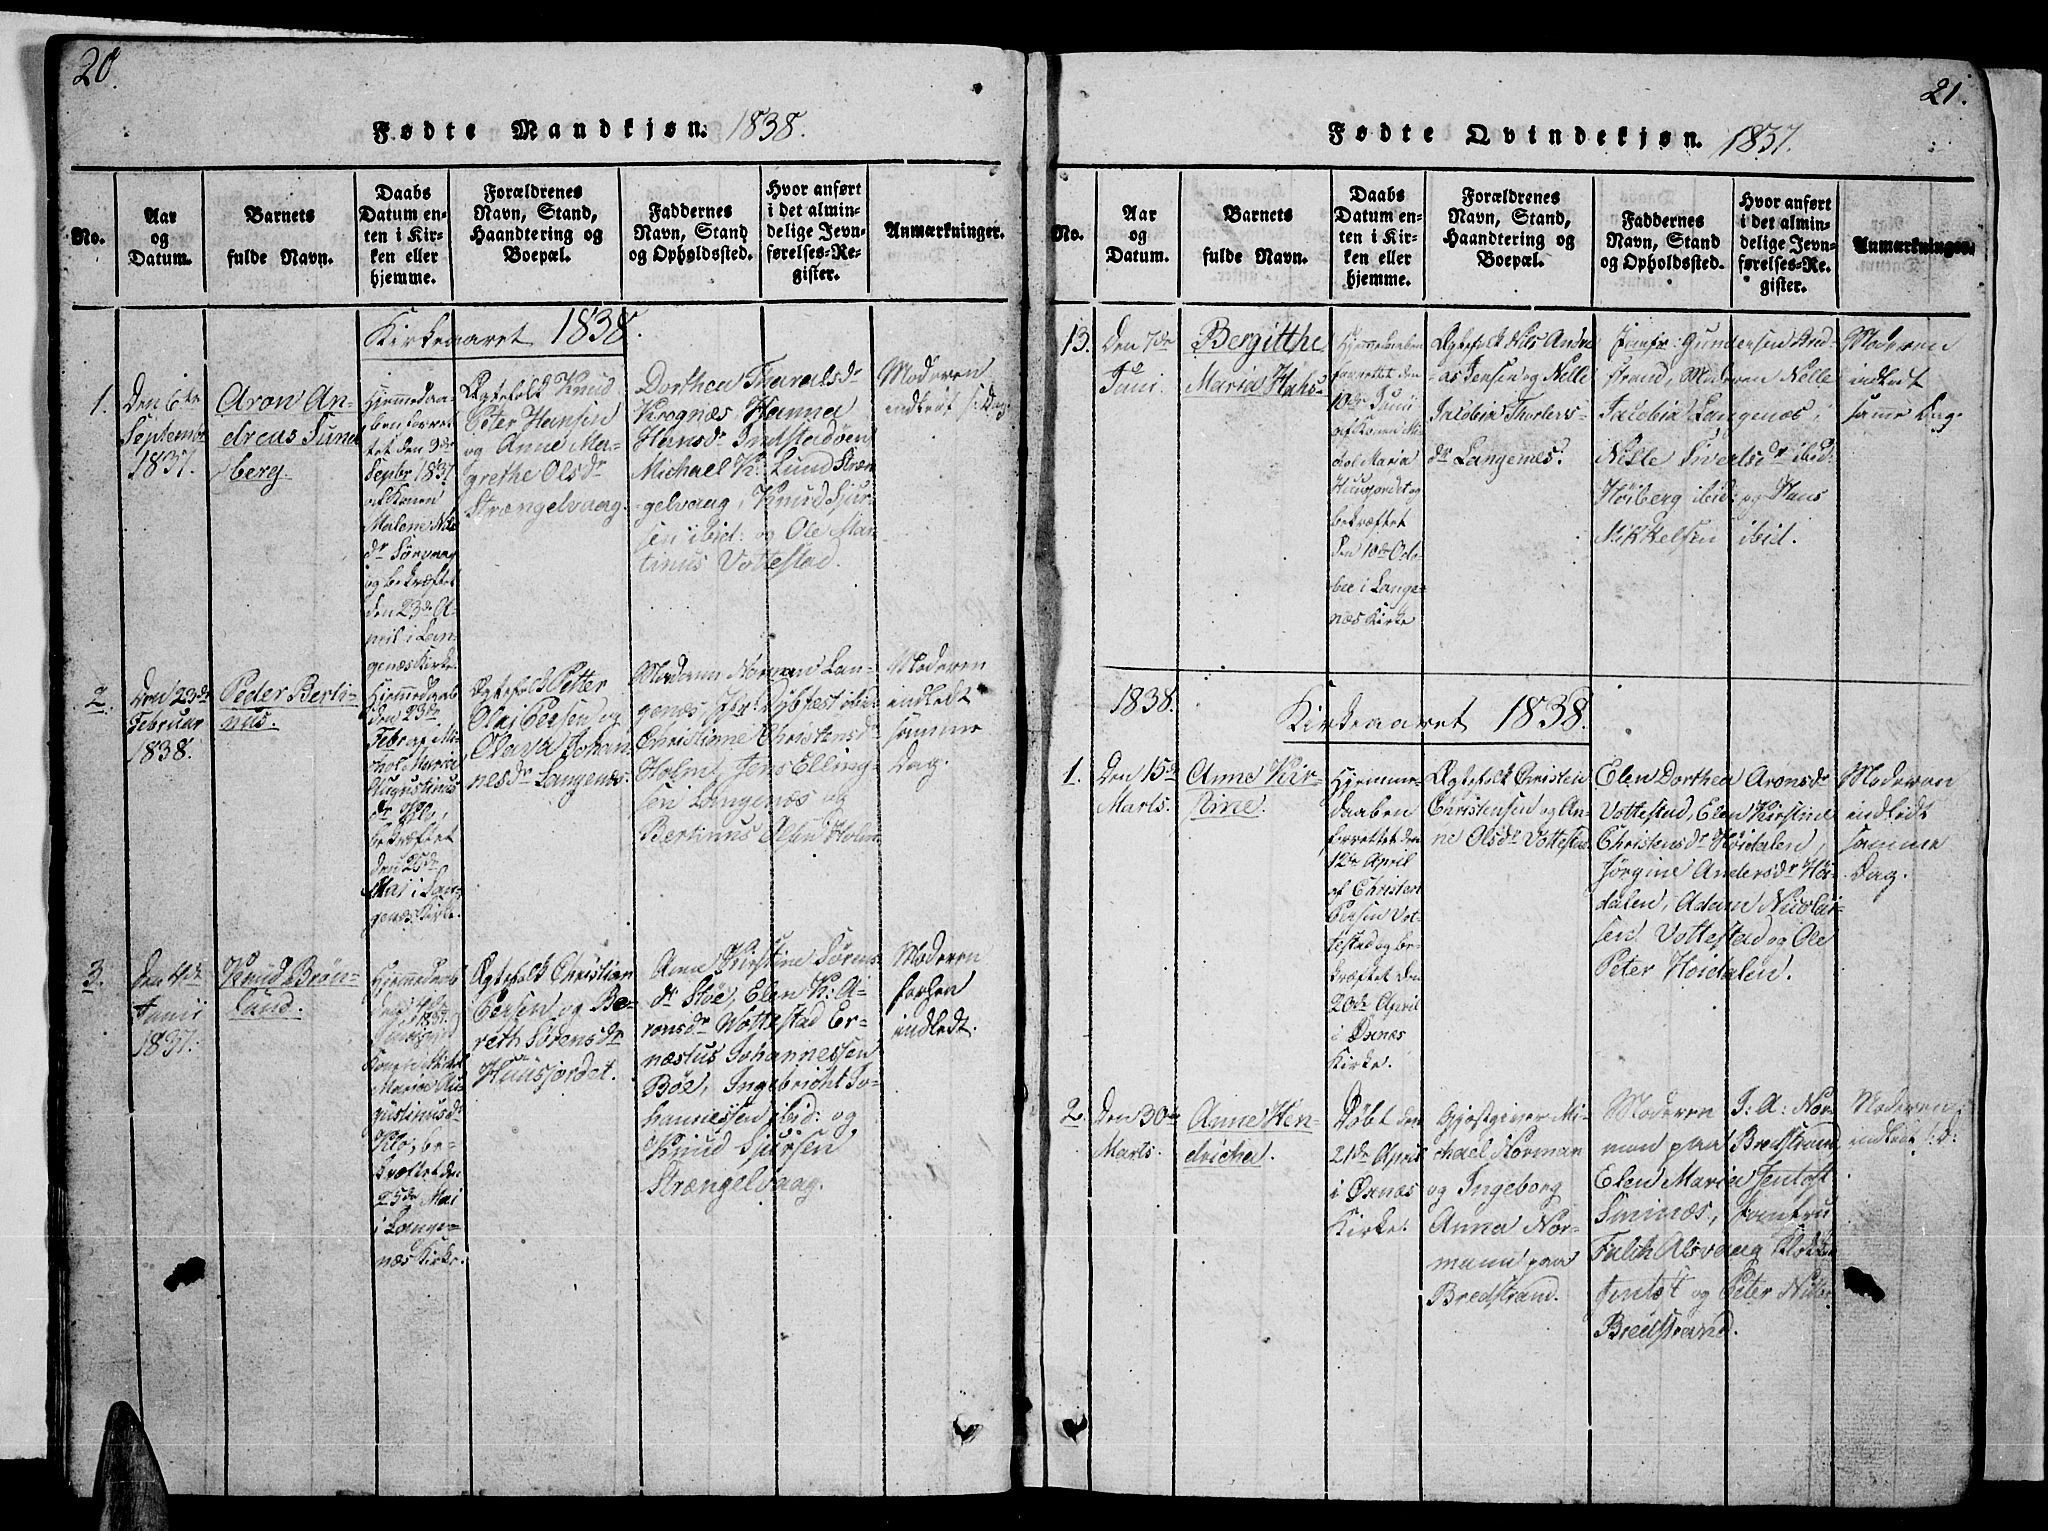 20.
Fødte Mandkjøn. 1838.
No.
Aar
og
Datum.
Barnets
fulde Navn.
Daabs
Datum en-
ten i Kir-
ken eller
hjemme.
Forældrenes
Navn, Stand,
Haandtering og
Boepæl.
Faddernes
Navn, Stand
og Opholdssted.
Hvor anført
i det almin-
delige Jevn-
førelses-Re-
gister.
Anmærkninger.
Kirkeaaret 1838.
1.
Den 6te
Septembr
1837.
Aron An-
dreas Sund
berg
Hjemmedaa-
ben forret-
tet den 9de
Septbr 1837
af Konen
Malene Nils
dr Sørvaag
og bekræftet
den 23de A-
pril i Lan-
genæs Kirke.
Ægtefolk Knud
Peter Hansen
og Anne Ma-
grethe Olsdr
Strængelvaag.
Dorthea Tharalsdr
Krognæs, Hanna
Hansdr
Michael K: Lund Stræn
gelvaag, Knud Sjur-
sen ibid: og Ole Mar-
tinus Vottestad.
Moderen
indledt s: Dag.
2.
Den 23de
Februar
1838.
Peder Berti-
nus.
Hjemmedaab
den 23de
Febr af Mi-
Maria
Augustinus
dr
bekræftet
den 25de
Mai i Lan-
genæs Kirke.
Ægtefolk Petter
Olai Persen og
Olava Johan
nesdr Langenæs.
Madam Norman Lan-
genæs,
Christianne Christensdr
Holm, Jens Elling-
sen Langenæs og
Bertinus Olsen Holm
Moderen
indledt
samme
Dag.
3.
Den 4de
Junii
1837.
Knud Brøn-
lund.
Hjemmedaab
Maria Au-
gustinusdr
Klo, be-
kræftet den
25de Mai
i Lange-
næs Kirke.
Ægtefolk Christian
Persen og Be-
reth Sørensdr
Huusjordet.
Anne Kirstine Sørens
dr Støe, Elen K: A-
ronsdr Vottestad Er-
næstus Johannessen
Böe, Ingebricht Jo-
hannessen ibid: og
Knud Sjursen
Strængelvaag.
Moderen
indledt.
21.
Fødte Qvindekjøn. 1837.
No.
Aar
og
Datum.
Barnets
fulde Navn.
Daabs
Datum en-
ten i Kir-
ken eller
hjemme.
Forældrenes
Navn, Stand,
Haandtering og
Boepæl.
Faddernes
Navn, Stand
og Opholdssted.
Hvor anført
i det almin-
delige Jevn-
førelses-Re-
gister.
Anmærkninger.
13.
Den 7de
Juni
Bergitthe
Maria
Hjemmedaaben
forrettet den
10de Junii
af Konen Mi-
Maria
Huusjordet og
bekræftet
den 10de Octo-
ber i Lange-
næs Kirke
Ægtefolk Nils Andre
as Jensen og Nelle
Jacobia
dr Langenes.
Jomfr: Gundersen Bred
strand, Moderen Nelle
Jacobia Langenæs,
Nelle Sivertsdr ibid:
Höiberg ibid: og Hans
Mikkelsen ibid.
Moderen
indledt
same Dag.
1838.
Kirkeaaret 1838.
1.
Den 15de
Marts.
Anne Kir-
stine.
Hjemme-
daaben
forrettet den
12te April
af Christen
Persen Vot-
testad og be-
kræftet den
20de April
i Øxnæs
Kirke.
Ægtefolk Christen
Christensen og An-
ne Olsdr Vottestad.
Elen Dorthea Aronsdr
Vottestad, Elen Kirstine
Christensdr Höidalen,
Jørgine Andersdr Höi-
dalen, Adam Nicolai-
sen Vottestad og Ole
Peter Höidalen.
Moderen
indledt
samme
Dag.
2.
Den 30te
Marts.
Anne Hen-
dricha.
Døbt den
21de April
i Øxnæs
Kirke.
Gjæstgiver Mi-
chael Norman
og Ingeborg
Anna Nor-
mann paa
Bredstrand.
Moderen J: A: Nor
man paa Bredstrand
Elen Maria Jentoft
Smines, Jomfru
Falch Alsvaag Klokker
Jentoft og Peter
Bredstrand.
Moderen
indledt s: D: